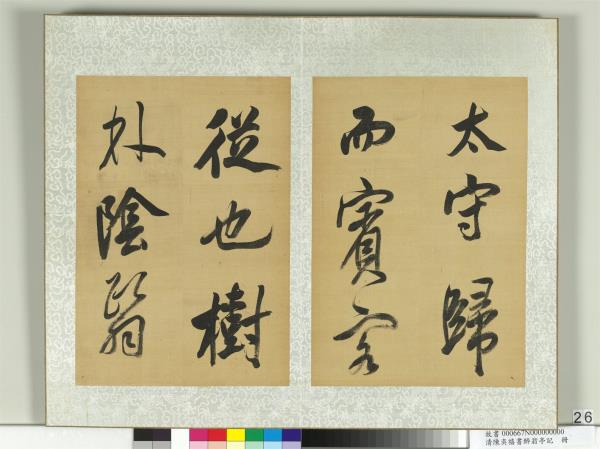 太守歸
而賓客
從也樹
林陰翳
26
故書 000667N000000000
清陳奕禧書醉翁亭記 冊